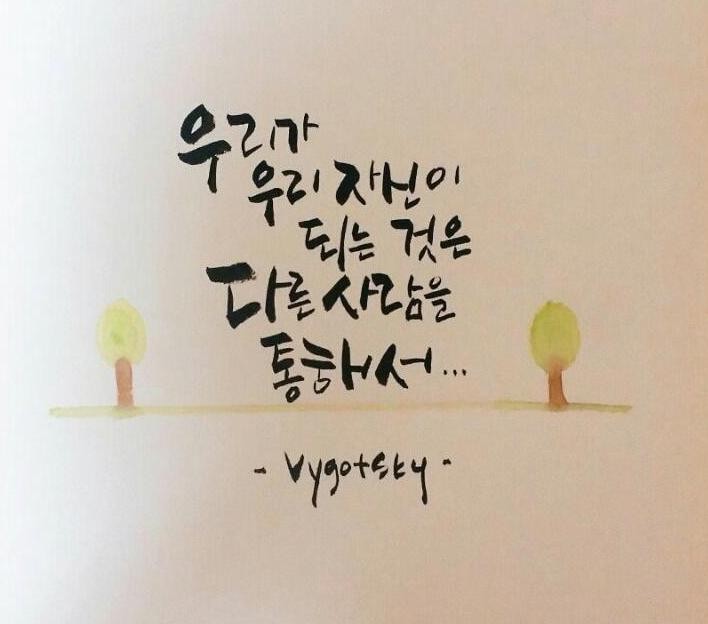 우리가
우리 자신이
되는 것은
다른 사람을
통해서...
- Vygotsky -